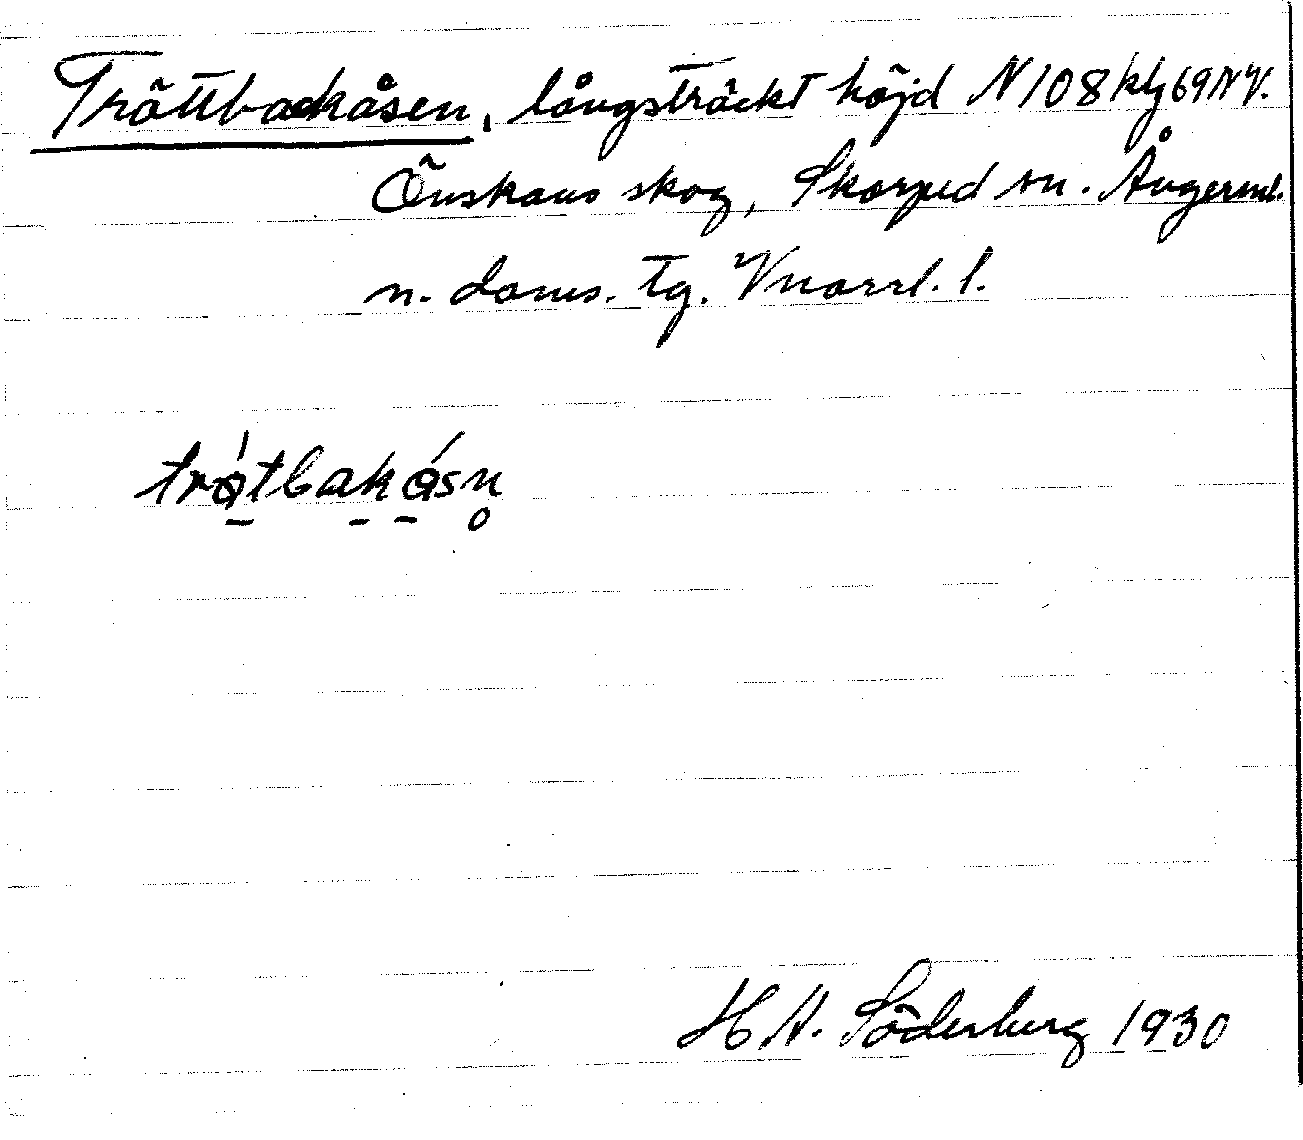 Tröttbackåsen, långsträckt höjd N 108 klg 69 NV.
Önskans skog, Skorped sn. Ångerml.
n. doms. tg. Vnorrl. l.
trǻtbakåsn̥
H A. Söderberg 1930